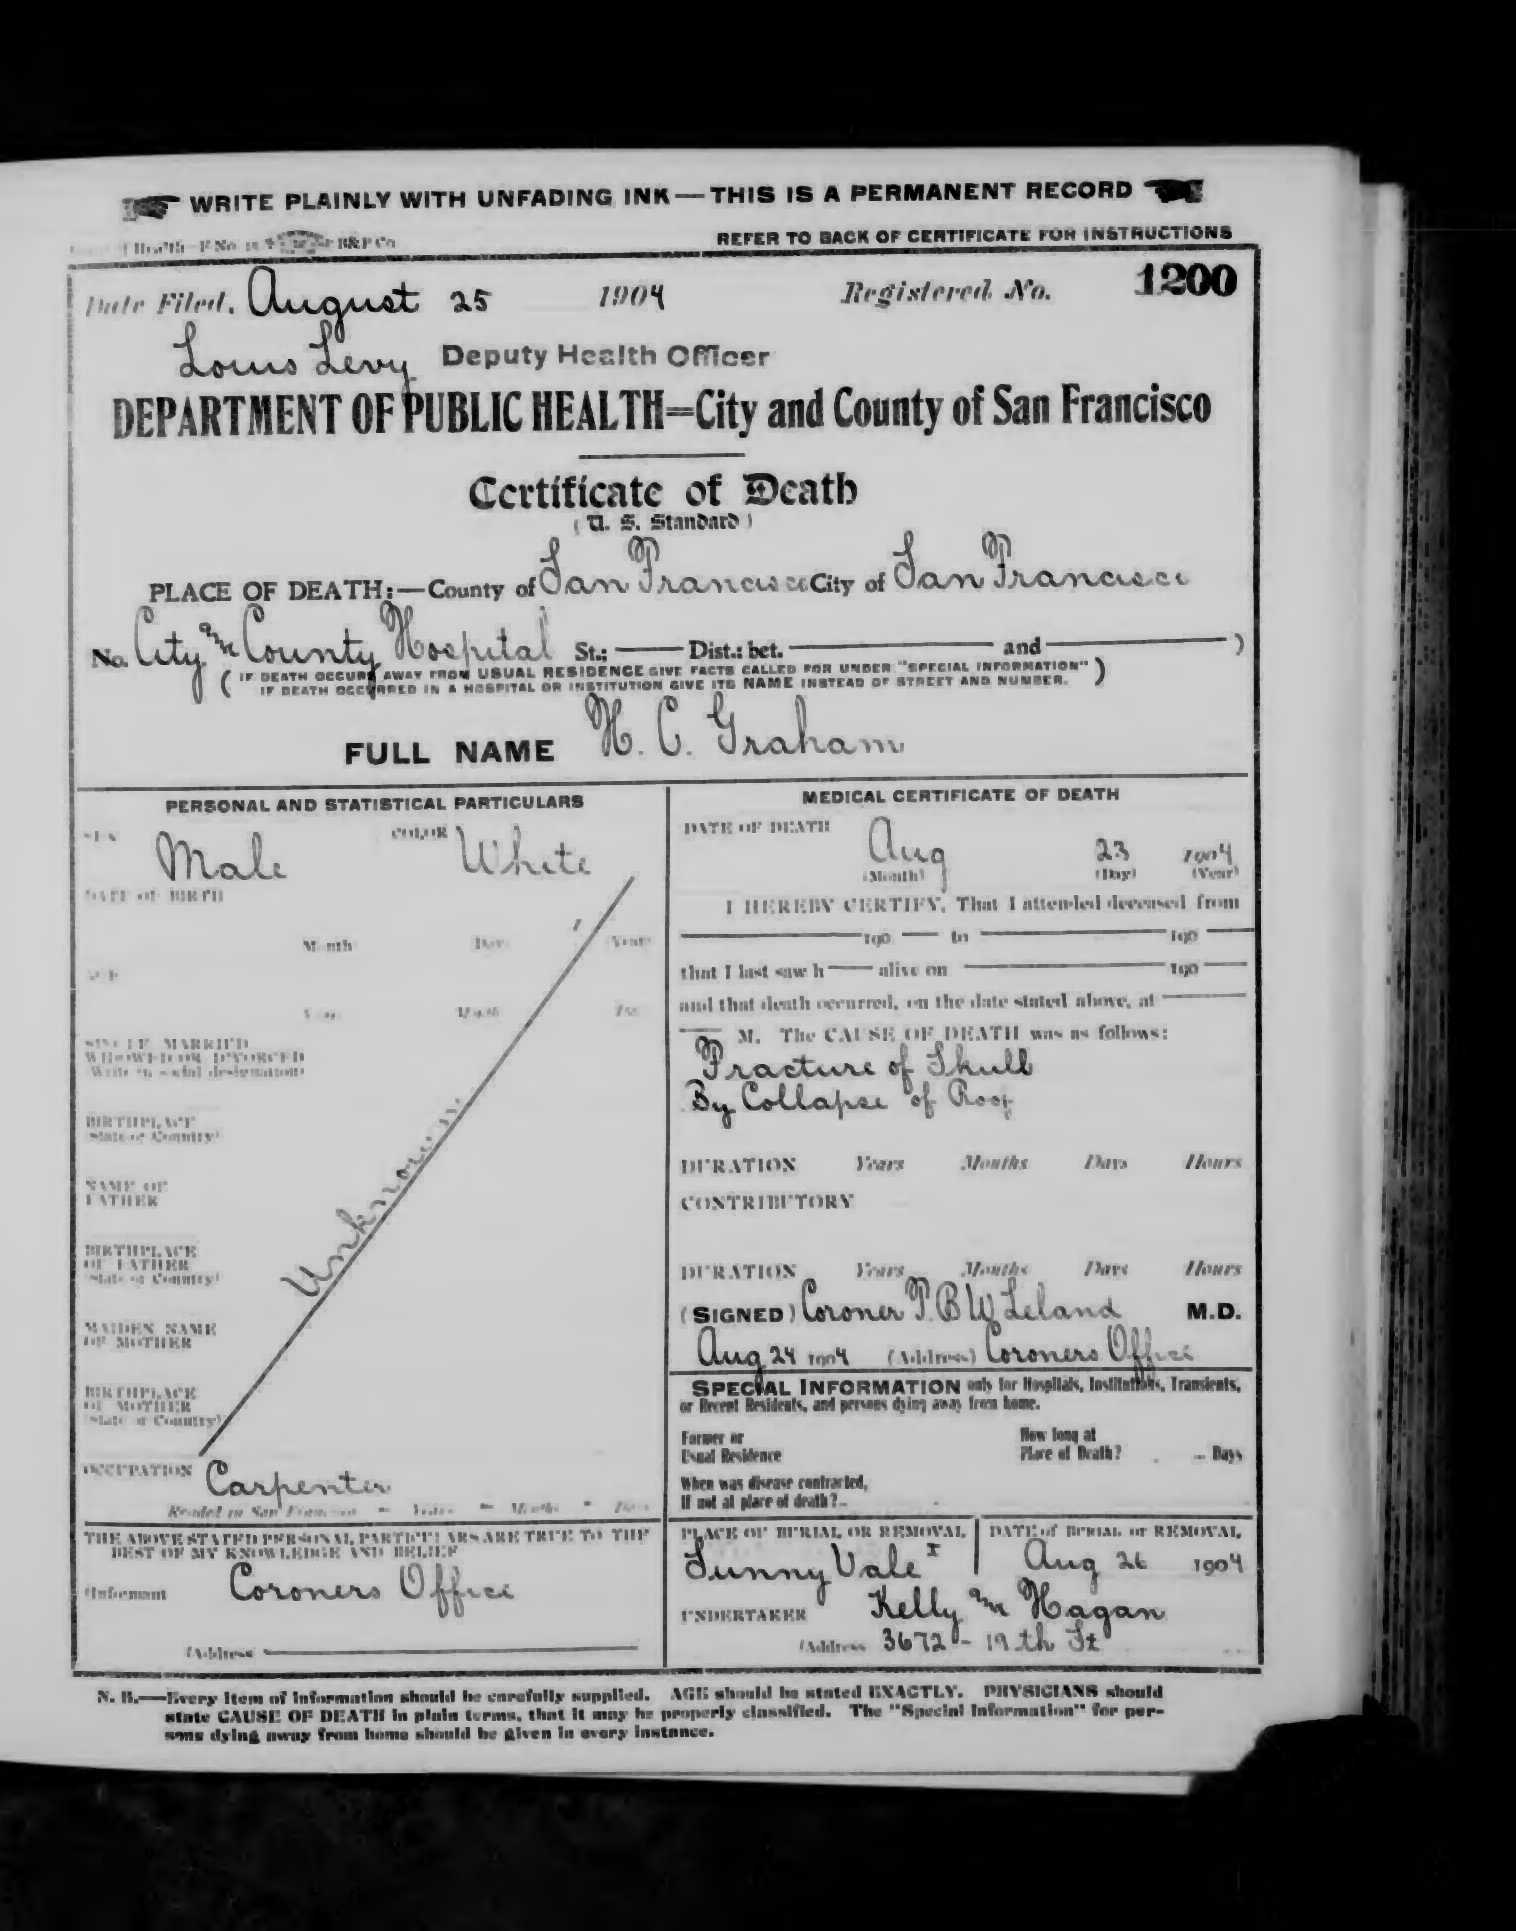 WRITE PLAINLY WITH UNFADING INK — THIS IS A PERMANENT RECORD
Health—F No. B&P Co
REFER TO BACK OF CERTIFICATE FOR INSTRUCTIONS
Date Filed, August 25 1904 Registered No. 1200
Louis Levy Deputy Health Officer
DEPARTMENT OF PUBLIC HEALTH=City and County of San Francisco
Certificate of Death
(U. S. Standard)
PLACE OF DEATH:—County of San Francisco City of San Francisco
No. City and County Hospital St.; — Dist.: bet. — and — )
( IF DEATH OCCURS AWAY FROM USUAL RESIDENCE GIVE FACTS CALLED FOR UNDER "SPECIAL INFORMATION" )
IF DEATH OCCURRED IN A HOSPITAL OR INSTITUTION GIVE ITS NAME INSTEAD OF STREET AND NUMBER.
FULL NAME H. C. Graham
PERSONAL AND STATISTICAL PARTICULARS
SEX Male COLOR White
DATE OF BIRTH
Month Day Year
AGE
Years Months Days
SINGLE MARRIED
WIDOWED OR DIVORCED
(Write in social designation)
BIRTHPLACE
(State or Country)
NAME OF
FATHER
BIRTHPLACE
OF FATHER
(State or Country)
Unknown
MAIDEN NAME
OF MOTHER
BIRTHPLACE
OF MOTHER
(State or Country)
OCCUPATION Carpenter
Resided in San Francisco - Years - Months - Days
THE ABOVE STATED PERSONAL PARTICULARS ARE TRUE TO THE
BEST OF MY KNOWLEDGE AND BELIEF
(Informant Coroners Office
(Address —
MEDICAL CERTIFICATE OF DEATH
DATE OF DEATH
Aug 23 1904
(Month) (Day) (Year)
I HEREBY CERTIFY, That I attended deceased from
— 190 — to — 190 —
that I last saw h — alive on — 190 —
and that death occurred, on the date stated above, at —
— M. The CAUSE OF DEATH was as follows:
Fracture of Skull
By Collapse of Roof
DURATION Years Months Days Hours
CONTRIBUTORY
DURATION Years Months Days Hours
(SIGNED) Coroner T. B W Leland M.D.
Aug 24 1904 (Address) Coroners Office
SPECIAL INFORMATION only for Hospitals, Institutions, Transients,
or Recent Residents, and persons dying away from home.
Former or
Usual Residence
How long at
Place of Death? Days
When was disease contracted,
If not at place of death?
PLACE OF BURIAL OR REMOVAL
Sunny Vale
DATE of BURIAL or REMOVAL
Aug 26 1904
UNDERTAKER Kelly and Hagan
(Address 3672 - 19th St
N. B.—Every item of information should be carefully supplied. AGE should be stated EXACTLY. PHYSICIANS should
state CAUSE OF DEATH in plain terms, that it may be properly classified. The "Special Information" for per-
sons dying away from home should be given in every instance.